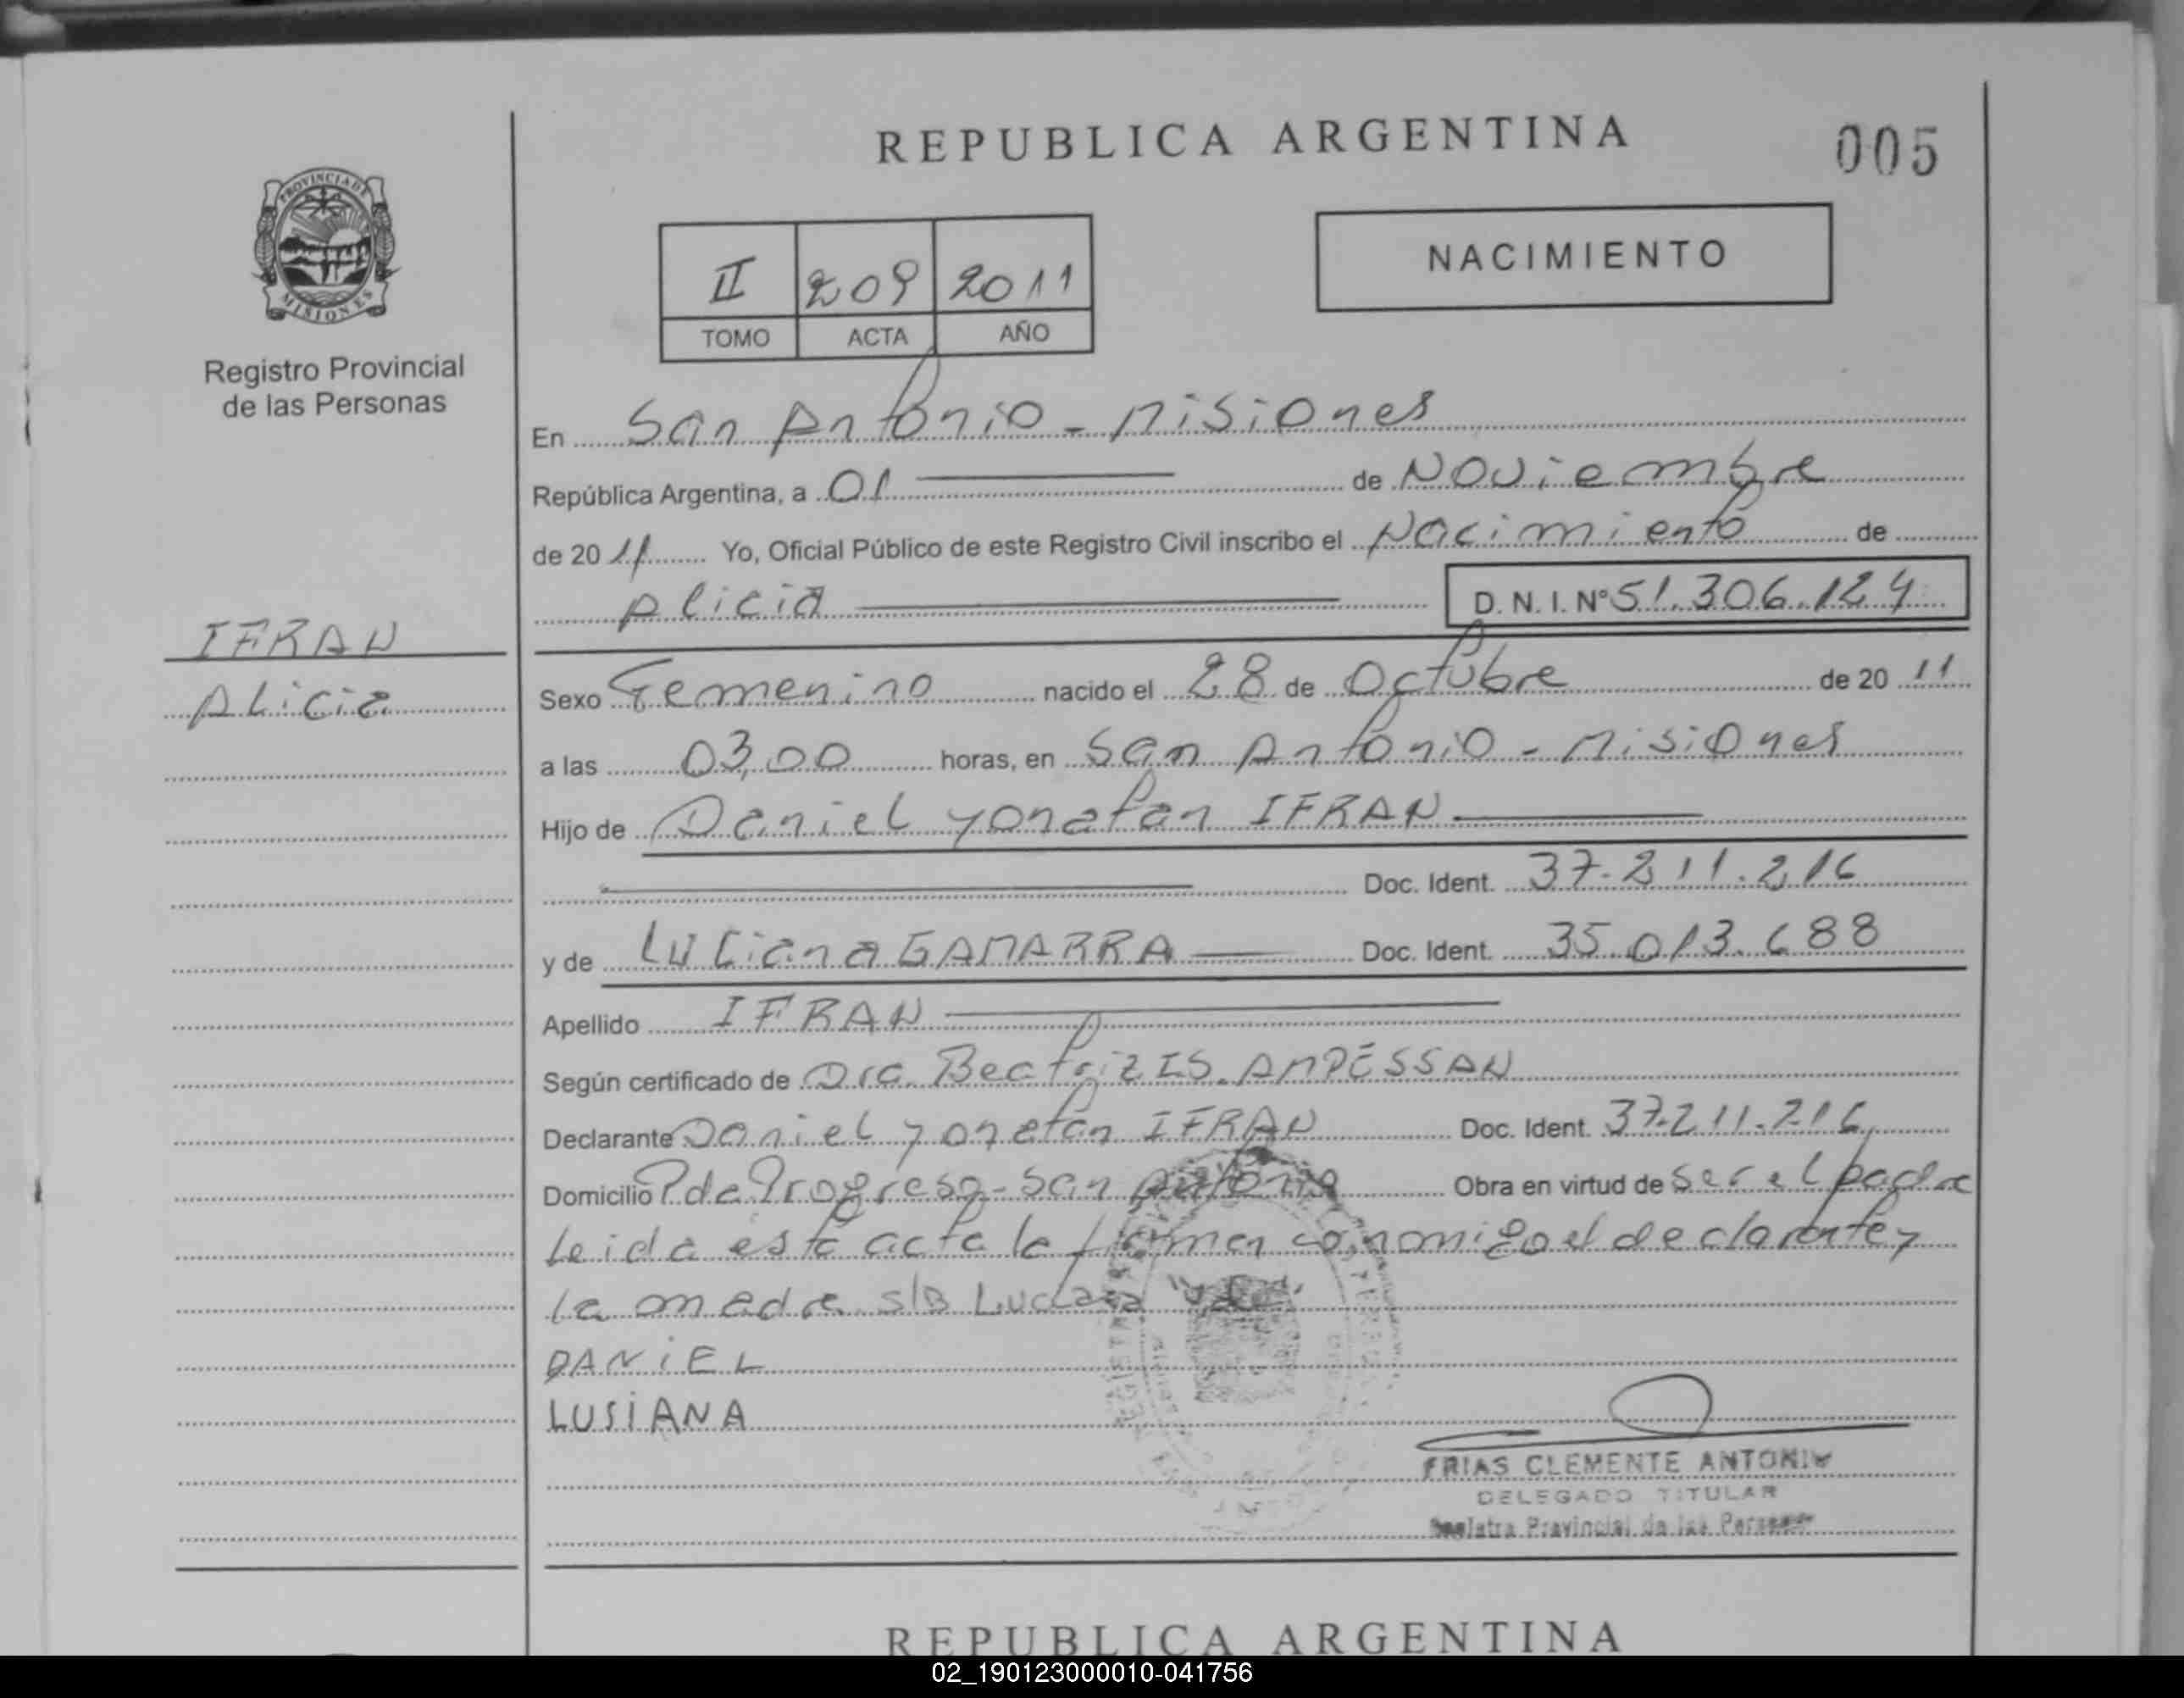 REPUBLICA ARGENTINA
005
PROVINCIA DE
MISIONES
Registro Provincial
de las Personas
II 209 2011
TOMO ACTA AÑO
NACIMIENTO
En San Antonio - Misiones
República Argentina, a 01 de Noviembre
de 2011 Yo, Oficial Público de este Registro Civil inscribo el Nacimiento de
Alicia D. N. I. N° 51.306.124
IFRAN
Alicia
Sexo Femenino nacido el 28 de Octubre de 2011
a las 03,00 horas, en San Antonio - Misiones
Hijo de Daniel yonatan IFRAN
Doc. Ident. 37-211.216
y de Luciana GAMARRA Doc. Ident. 35.013.688
Apellido IFRAN
Según certificado de Dra. Beatriz IS.
Declarante Daniel yonatan IFRAN Doc. Ident. 37.211.216
Domicilio P de Progreso - San Antonio Obra en virtud de ser el padre
Leida esta acta la firman conmigo el declarante y
la madre s/B
DANIEL
LUSIANA
FRIAS CLEMENTE ANTONIO
DELEGADO TITULAR
Registro Provincial de las Personas
REPUBLICA ARGENTINA
02_190123000010-041756